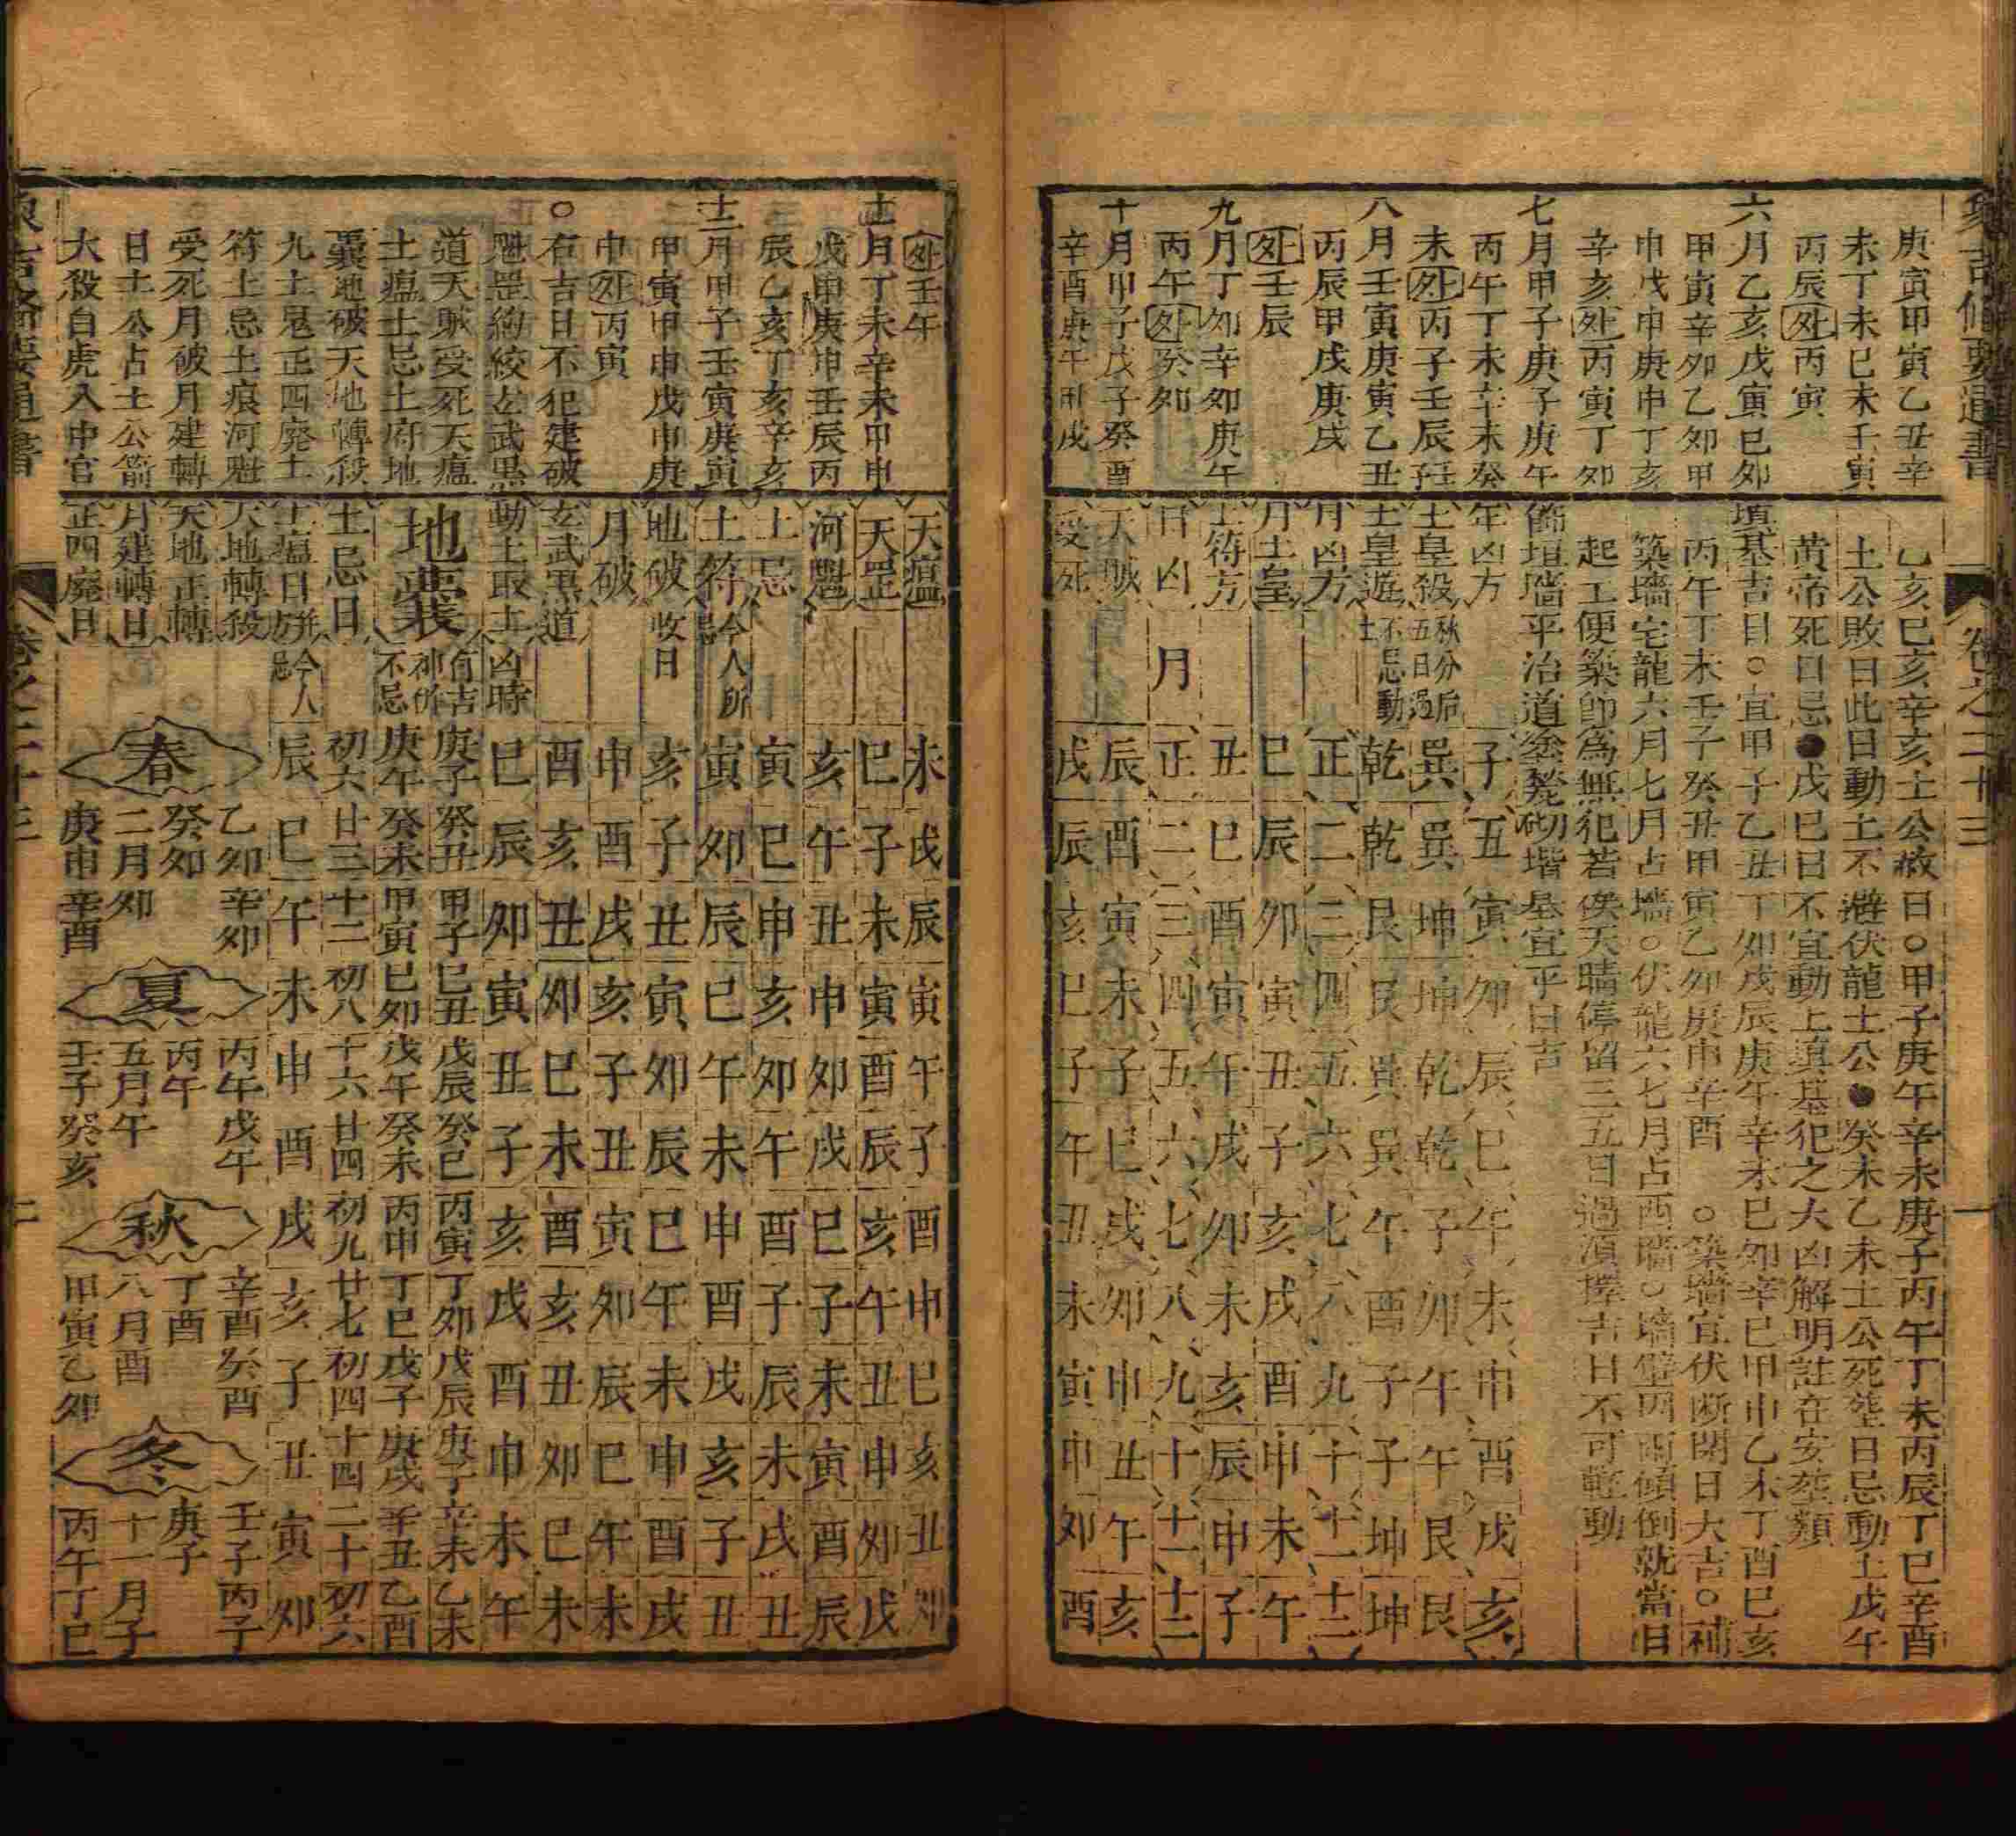 庚寅甲寅乙丑辛
未丁未己未壬寅
丙辰外丙寅
六月乙亥戊寅己卯
甲寅辛卯乙卯甲
申戊申庚申丁亥
辛亥外丙寅丁卯
七月甲子庚子庚午
丙午丁未辛未癸
未外丙子壬辰壬子
八月壬寅庚寅乙丑
丙辰甲戌庚戌
外壬辰
九月丁卯辛卯庚午
丙午外癸卯
十月甲子戊子癸酉
辛酉庚午甲戌
乙亥己亥辛亥土公敗日○甲子庚午辛未庚子丙午丁未丙辰丁巳辛酉
土公敗日此日動土不避伏龍土公●癸未乙未土公死塟日忌動土戊午
黃帝死日忌●戊己日不宜動土填基犯之大凶解明註在安塟類
填基吉日○宜甲子乙丑丁卯戊辰庚午辛未己卯辛巳甲申乙未丁酉己亥
丙午丁未壬子癸丑甲寅乙卯庚申辛酉 ○築墻宜伏断閉日大吉○補
築墻宅龍六月七月占墻○伏龍六七月占西墻○墻壁因雨傾倒就當日
起工便築即為無犯若俟天晴停留三五日過須擇吉日不可輕動
飾垣墻平治道塗甃砌堦基宜平日吉
年凶方 子 丑 寅 卯 辰 巳 午 未 申 酉 戌 亥
土皇殺 秋分后五日過 巽 巽 坤 坤 乾 乾 子 卯 午 午 艮 艮
土皇遊 不忌動土 乾 乾 艮 艮 巽 巽 午 酉 子 子 坤 坤
月凶方 正 二 三 四 五 六 七 八 九 十 十一 十二
月土皇 巳 辰 卯 寅 丑 子 亥 戌 酉 申 未 午
土符方 丑 巳 酉 寅 午 戌 卯 未 亥 辰 申 子
日凶 月 正 二 三 四 五 六 七 八 九 十 十一 十二
天賊 辰 酉 寅 未 子 巳 戌 卯 申 丑 午 亥
受死 戌 辰 亥 巳 子 午 丑 未 寅 申 卯 酉
卷之二十三
一
外壬午
十一月丁未辛未甲申
戊申庚申壬辰丙
辰乙亥丁亥辛亥
十二月甲子壬寅庚寅
甲寅甲申戊申庚
申外丙寅
○右吉日不犯建破
魁罡絢絞玄武黑
道天賊受死天瘟
土瘟土忌土府地
囊地破天地轉殺
九土鬼正四廢土
符土忌土痕河魁
受死月破月建轉
日土公占土公箭
大殺白虎入中宮
天瘟 未 戌 辰 寅 午 子 酉 申 巳 亥 丑 卯
天罡 巳 子 未 寅 酉 辰 亥 午 丑 申 卯 戌
河魁 亥 午 丑 申 卯 戌 巳 子 未 寅 酉 辰
土忌 寅 巳 申 亥 卯 午 酉 子 辰 未 戌 丑
土符 今人所忌 寅 卯 辰 巳 午 未 申 酉 戌 亥 子 丑
地破 收日 亥 子 丑 寅 卯 辰 巳 午 未 申 酉 戌
月破 申 酉 戌 亥 子 丑 寅 卯 辰 巳 午 未
玄武黑道 酉 亥 丑 卯 巳 未 酉 亥 丑 卯 巳 未
動土取土凶時 巳 辰 卯 寅 丑 子 亥 戌 酉 申 未 午
地囊 有吉神所不忌
庚子癸丑 甲子己丑 戊辰癸巳 丙寅丁卯 戊辰庚子 辛未乙未
庚午癸未 甲寅己卯 戊午癸未 丙申丁巳 戊子庚戌 辛丑乙酉
土忌日 初六 廿三 十二 初八 十六 廿四 初九 廿七 初四 十四 二十 初六
土瘟日併方 今人忌 辰 巳 午 未 申 酉 戌 亥 子 丑 寅 卯
天地轉殺 春 乙卯辛卯 夏 丙午戊午 秋 辛酉癸酉 冬 壬子丙子
天地正轉 癸卯 丙午 丁酉 庚子
月建轉日 二月卯 五月午 八月酉 十一月子
正四廢日 庚申辛酉 壬子癸亥 甲寅乙卯 丙午丁巳
二